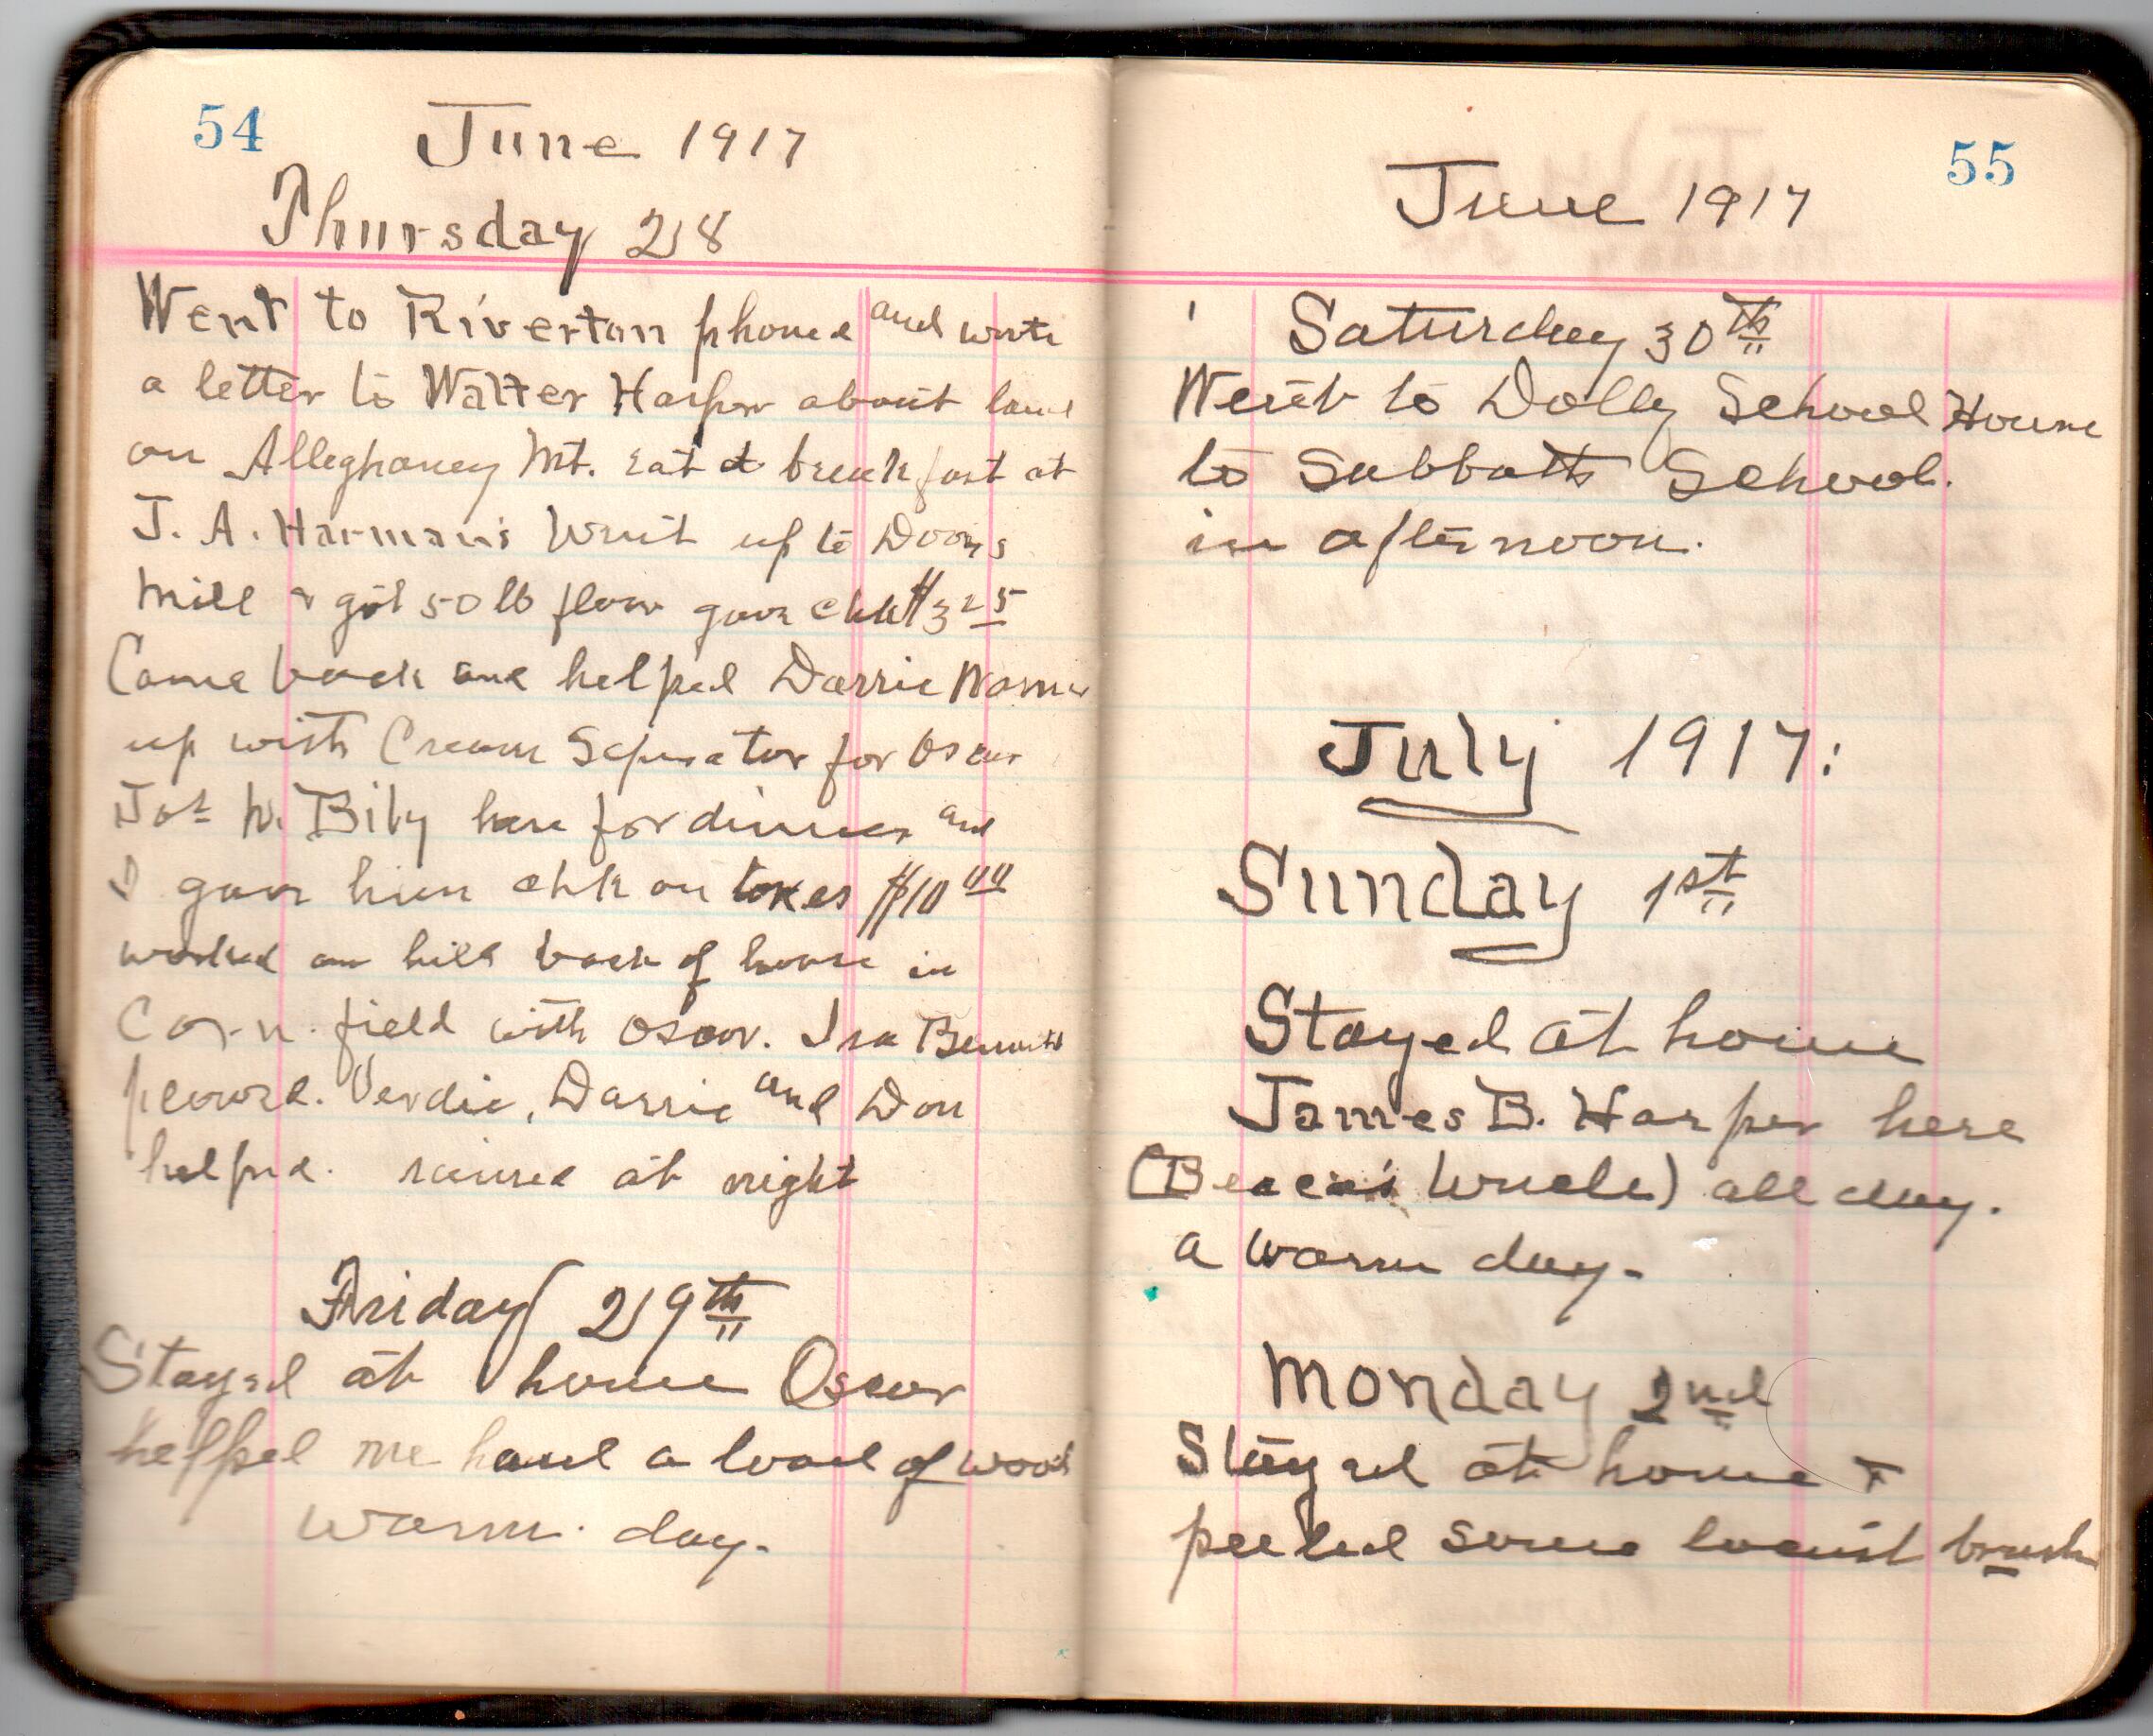 54
June 1917
Thursday 28
Went to Riverton phoned and wrote
a letter to Walter Harper about land
on Alleghaney Mt. eat breakfast at
J. A. Harman's Went up to
Mill & got 50 lb flour gave chk $3 25
Came back and helped Darrie
up with Cream Seperator for Oscar
Jos W. Biby here for dinner and
I gave him chk on taxes $10 00
worked on hill back of house in
Corn field with Oscar. Isa Bennett
plowed. Verdie, Darrie and Don
helped. rained at night
Friday 29th
Stayed at home Oscar
helped me haul a load of wood
warm day.
55
June 1917
Saturday 30th
Went to Dolly School House
to Sabbath School.
in afternoon.
July 1917:
Sunday 1st
Stayed at home
James B. Harper here
( Uncle) all day.
a warm day.
Monday 2nd
Stayed at home &
peeled some locust brush